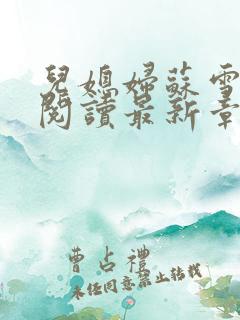 兒媳婦蘇雪
閱讀最新章
曹占禮
未經同意禁止轉載